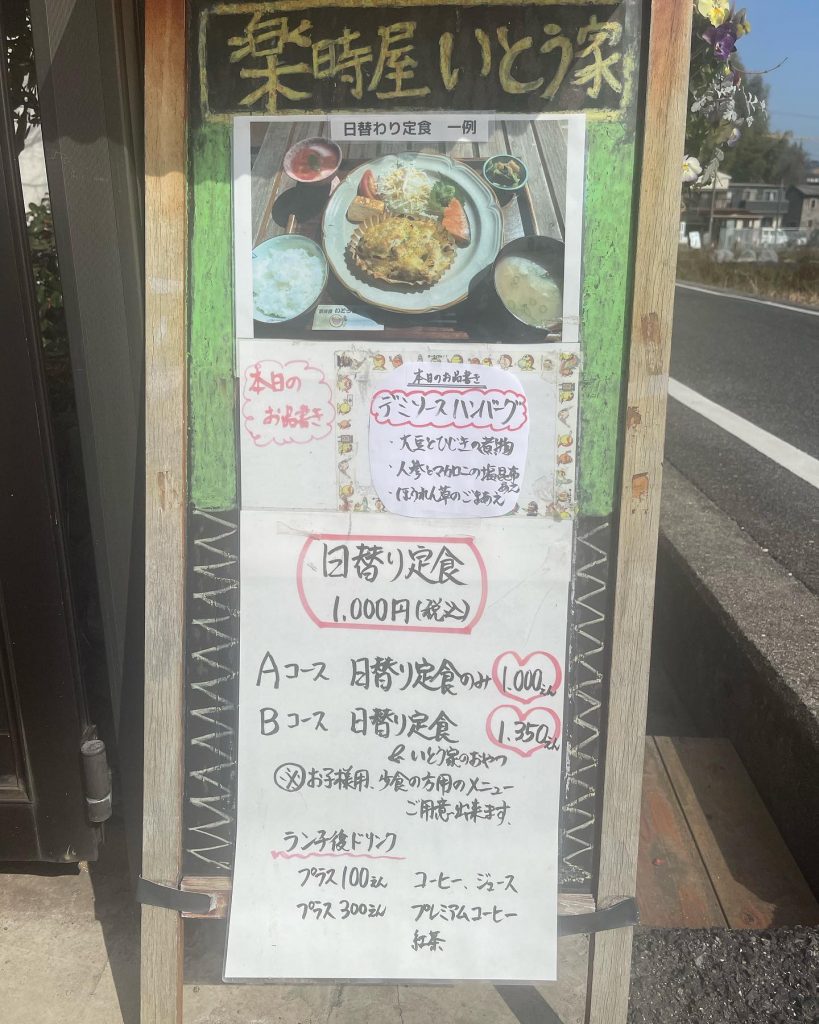 楽時屋 いとう家
日替わり定食 一例
本日の
お品書き
本日のお品書き
デミソースハンバーグ
・大豆とひじきの煮物
・人参とマカロニの塩昆布
あえ
・ほうれん草のごまあえ
日替り定食
1,000円(税込)
Aコース 日替り定食のみ 1.000えん
Bコース 日替り定食 1.350えん
& いとう家のおやつ
※お子様用、少食の方用のメニュー
ご用意出来ます。
ランチ後ドリンク
プラス100えん コーヒー、ジュース
プラス300えん プレミアムコーヒー
紅茶